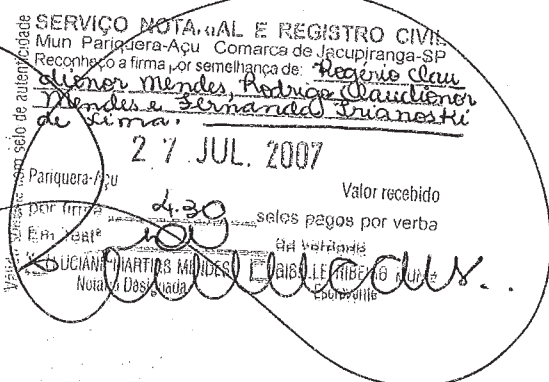 SERVIÇO NOTARIAL E REGISTRO CIVIL
Mun Pariquera-Açu Comarca de Jacupiranga-SP
Reconheço a firma por semelhança de: Rogério Clau
dionor Mendes, Rodrigo Claudionor
Mendes e Fernanda Trianoski
de Lima.
27 JUL. 2007
Pariquera-Açu
Valor recebido
por firma 4.30 selos pagos por verba
Em testº da verdade
LUCIANE MARTINS MENDES
Notária Designada Escrevente
selo de autenticidade